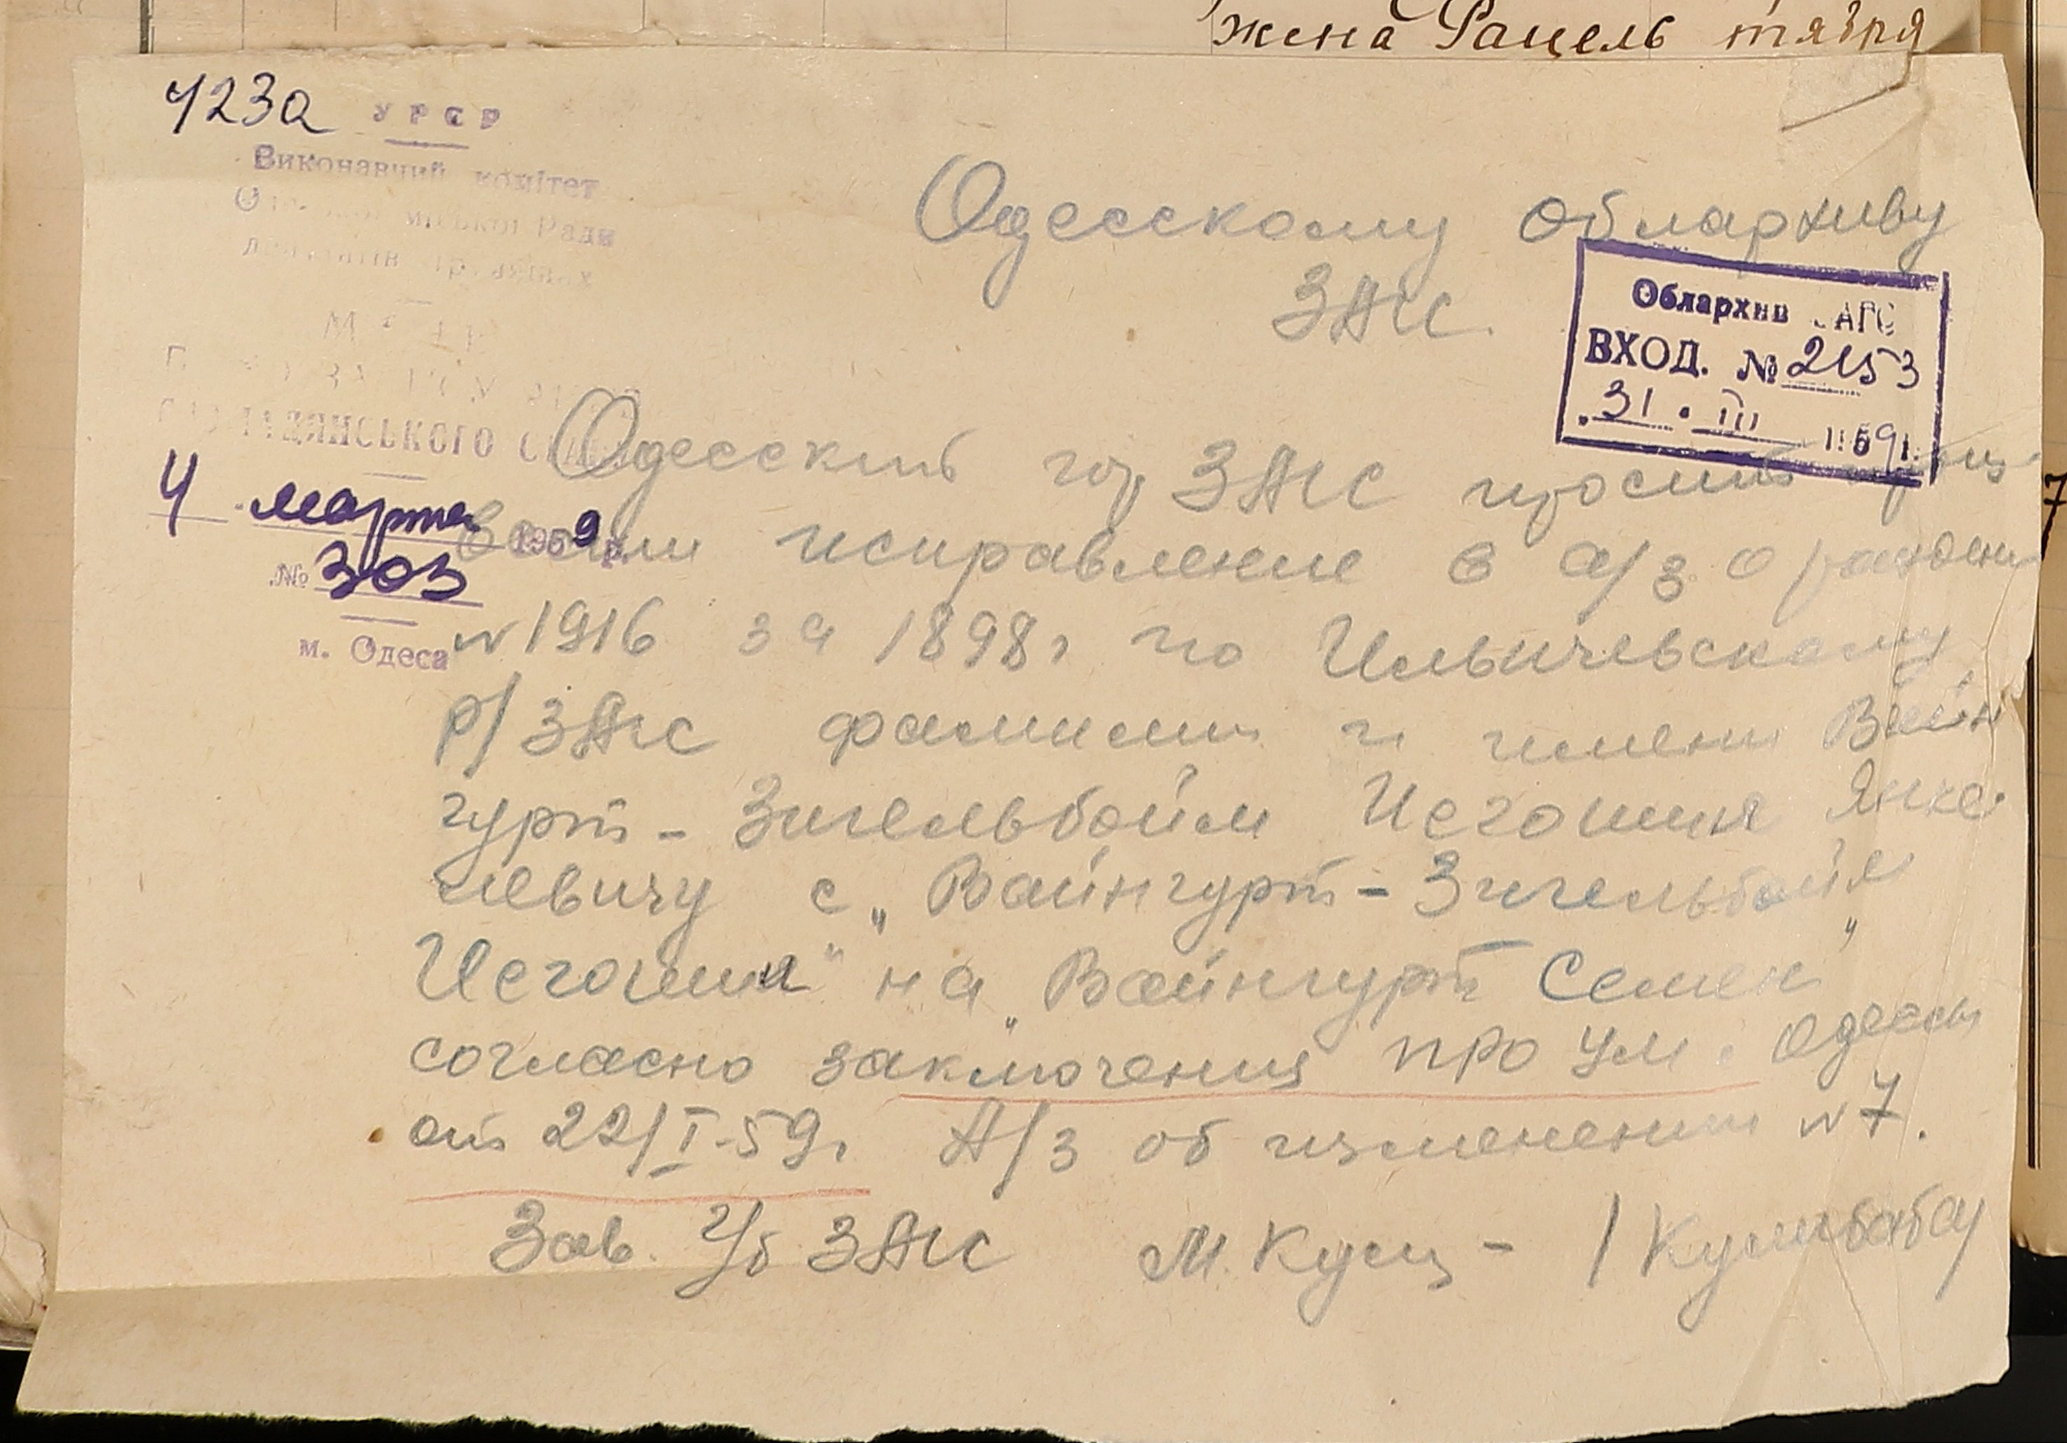 жена Рацель
423а
УРСР
Виконавчий комітет
міської Ради
м. Одеса
4 марта 1959 р.
№ 303
Одесскому облархиву
ЗАГС.
Облархив ЗАГС
ВХОД. № 2153
31. III 1959 г.
Одесский гор ЗАГС просит
внести исправление в а/з о рождени
№ 1916 за 1898 г по Ильичевскому
р/ЗАГС фамилии и имени Вайн
гурт - Зигельбойм Иегошия Янке
левичу с „Вайнгурт - Зигельбойм
Иегошия" на „Вайнгурт Семен"
согласно заключения про УМ. Одессы
от 22/I-59 г. А/З об изменении № 7.
Зав. Г/б ЗАГС М. Кущ - /Кулибаба/
7